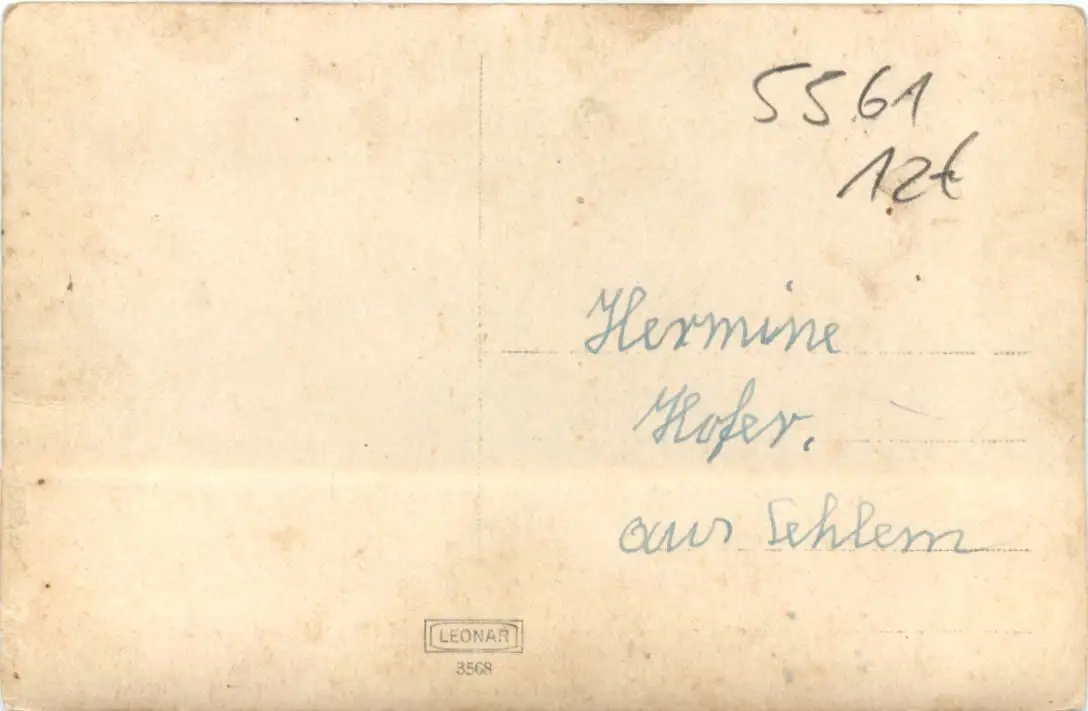 5561
12€
Hermine
Hofer.
aus Sehlem
LEONAR
3568